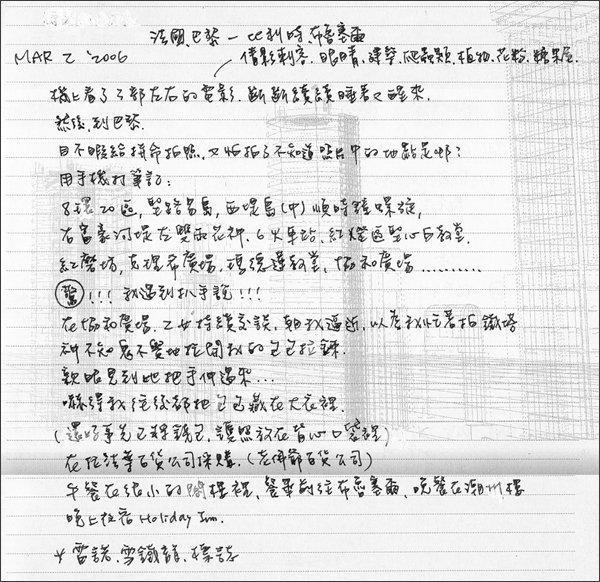 法國.巴黎 — 比利時.布魯塞爾
MAR 2 '2006
借影刺客.眼睛.建築.爬蟲類.植物.花粉.糖果屋
機上看了3部左右的電影.斷斷續續睡著又醒來.
然後到巴黎.
目不暇給拼命拍照,又怕拍了不知道照片中的地點是哪?
用手機打筆記:
8環20區,聖路易島,西堤島(中)順時鐘螺旋,
右富豪河堤左雙雨花神.6火車站.紅燈區聖心白教堂.
紅磨坊,克理希廣場.瑪德蓮教堂,協和廣場..........
(驚)!!!我遇到扒手說!!!
在協和廣場.2女持續交談,朝我逼近,以為我忙著拍鐵塔
神不知鬼不覺地拉開我的包包拉鍊.
親眼見到她把手伸過來...
嚇得我往後都把包包藏在大衣裡.
(還好事先已將錢包、護照放在背心口袋裡)
在拉法葉百貨公司採購.(老佛爺百貨公司)
午餐在很小的閣樓裡,餐畢前往布魯塞爾.晚餐在潮州樓
晚上夜宿Holiday Inn.
* 雷諾.雪鐵龍.標誌